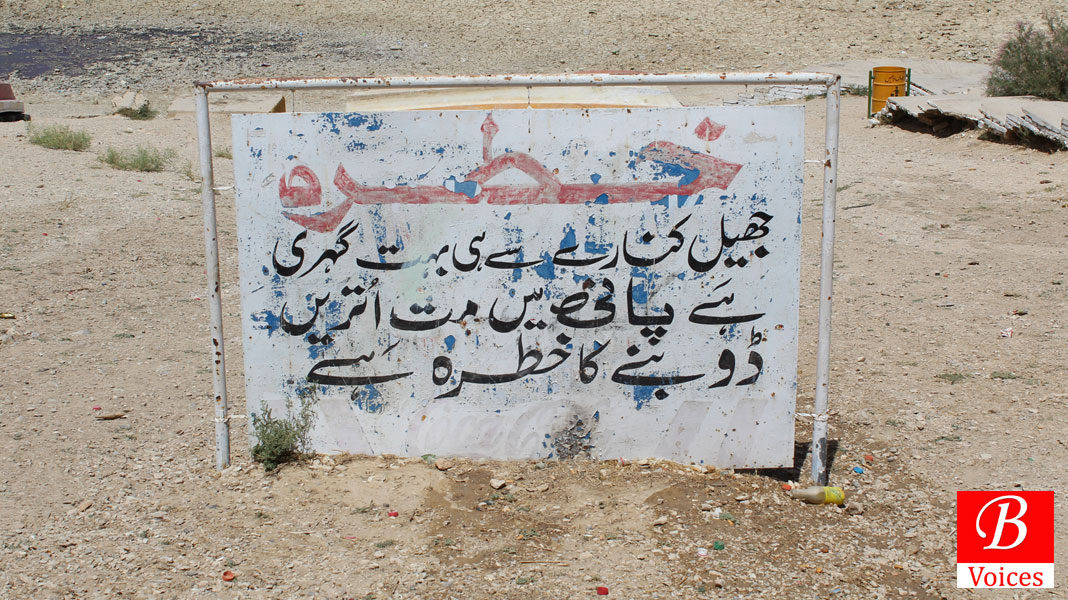 خطرہ
جھیل کنارے سے ہی بہت گہری
ہَے پانی میں مت اُتریں
ڈوبنے کا خطرہ ہَے
B
Voices